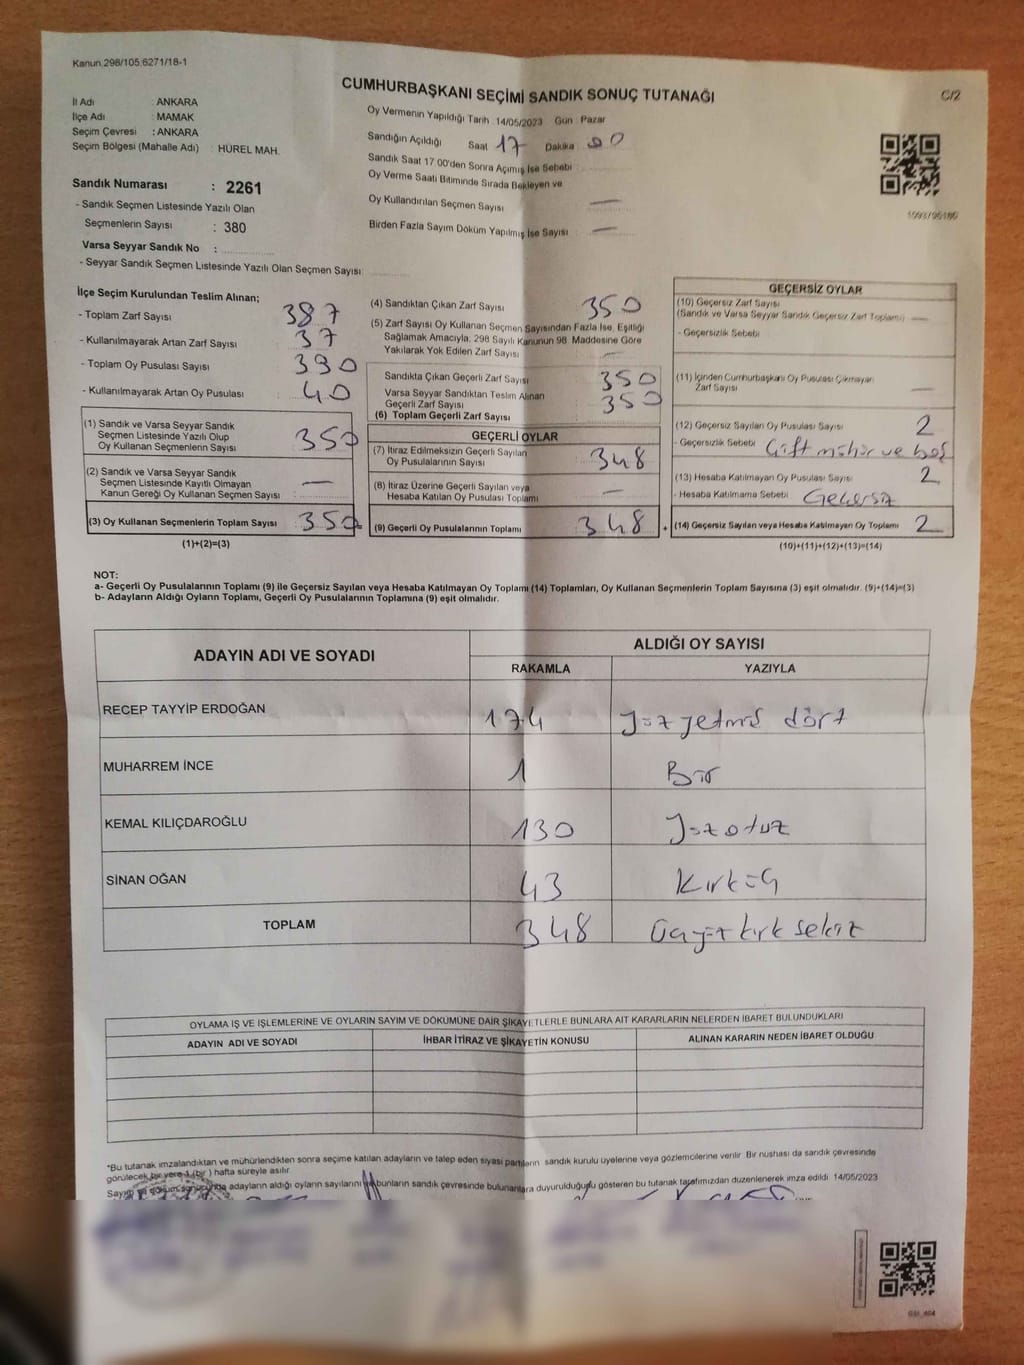 Kanun 298/105,6271/18-1
C/2
CUMHURBAŞKANI SEÇİMİ SANDIK SONUÇ TUTANAĞI
İl Adı : ANKARA
İlçe Adı : MAMAK
Seçim Çevresi : ANKARA
Seçim Bölgesi (Mahalle Adı) : HÜREL MAH.
Oy Vermenin Yapıldığı Tarih : 14/05/2023 Gün : Pazar
Sandığın Açıldığı Saat 17 Dakika : 00
Sandık Saat 17 00'den Sonra Açımış İse Sebebi :
Oy Verme Saati Bitiminde Sırada Bekleyen ve
Oy Kullandırılan Seçmen Sayısı —
Birden Fazla Sayım Döküm Yapılmış İse Sayısı : —
Sandık Numarası : 2261
- Sandık Seçmen Listesinde Yazılı Olan
Seçmenlerin Sayısı : 380
Varsa Seyyar Sandık No :
- Seyyar Sandık Seçmen Listesinde Yazılı Olan Seçmen Sayısı:
İlçe Seçim Kurulundan Teslim Alınan;
- Toplam Zarf Sayısı : 387
- Kullanılmayarak Artan Zarf Sayısı : 37
- Toplam Oy Pusulası Sayısı : 390
- Kullanılmayarak Artan Oy Pusulası : 40
(1) Sandık ve Varsa Seyyar Sandık
Seçmen Listesinde Yazılı Olup
Oy Kullanan Seçmenlerin Sayısı : 350
(2) Sandık ve Varsa Seyyar Sandık
Seçmen Listesinde Kayıtlı Olmayan
Kanun Gereği Oy Kullanan Seçmen Sayısı : —
(3) Oy Kullanan Seçmenlerin Toplam Sayısı : 350
(1)+(2)=(3)
(4) Sandıktan Çıkan Zarf Sayısı : 350
(5) Zarf Sayısı Oy Kullanan Seçmen Sayısından Fazla İse, Eşitliği
Sağlamak Amacıyla, 298 Sayılı Kanunun 98. Maddesine Göre
Yakılarak Yok Edilen Zarf Sayısı : —
Sandıkta Çıkan Geçerli Zarf Sayısı : 350
Varsa Seyyar Sandıktan Teslim Alınan
Geçerli Zarf Sayısı : 350
(6) Toplam Geçerli Zarf Sayısı :
GEÇERLİ OYLAR
(7) İtiraz Edilmeksizin Geçerli Sayılan
Oy Pusulalarının Sayısı : 348
(8) İtiraz Üzerine Geçerli Sayılan veya
Hesaba Katılan Oy Pusulası Toplamı : —
(9) Geçerli Oy Pusulalarının Toplamı : 348 +
GEÇERSİZ OYLAR
(10) Geçersiz Zarf Sayısı
(Sandık ve Varsa Seyyar Sandık Geçersiz Zarf Toplamı) : —
- Geçersizlik Sebebi :
(11) İçinden Cumhurbaşkanı Oy Pusulası Çıkmayan
Zarf Sayısı : —
(12) Geçersiz Sayılan Oy Pusulası Sayısı : 2
- Geçersizlik Sebebi : Çift mühür ve boş
(13) Hesaba Katılmayan Oy Pusulası Sayısı : 2
- Hesaba Katılmama Sebebi : Geçersiz
(14) Geçersiz Sayılan veya Hesaba Katılmayan Oy Toplamı : 2
(10)+(11)+(12)+(13)=(14)
NOT:
a- Geçerli Oy Pusulalarının Toplamı (9) ile Geçersiz Sayılan veya Hesaba Katılmayan Oy Toplamı (14) Toplamları, Oy Kullanan Seçmenlerin Toplam Sayısına (3) eşit olmalıdır. (9)+(14)=(3)
b- Adayların Aldığı Oyların Toplamı, Geçerli Oy Pusulalarının Toplamına (9) eşit olmalıdır.
ADAYIN ADI VE SOYADI
ALDIĞI OY SAYISI
RAKAMLA YAZIYLA
RECEP TAYYİP ERDOĞAN 174 Yüz yetmiş dört
MUHARREM İNCE 1 Bir
KEMAL KILIÇDAROĞLU 130 Yüz otuz
SİNAN OĞAN 43 Kırk üç
TOPLAM 348 Üçyüz kırk sekiz
OYLAMA İŞ VE İŞLEMLERİNE VE OYLARIN SAYIM VE DÖKÜMÜNE DAİR ŞİKAYETLERLE BUNLARA AİT KARARLARIN NELERDEN İBARET BULUNDUKLARI
ADAYIN ADI VE SOYADI İHBAR İTİRAZ VE ŞİKAYETİN KONUSU ALINAN KARARIN NEDEN İBARET OLDUĞU
*Bu tutanak imzalandıktan ve mühürlendikten sonra seçime katılan adayların ve talep eden siyasi partilerin sandık kurulu üyelerine veya gözlemcilerine verilir. Bir nüshası da sandık çevresinde
görülecek bir yere 1 (bir) hafta süreyle asılır.
Sayım ve döküm sonucunda adayların aldığı oyların sayılarını ve bunların sandık çevresinde bulunanlara duyurulduğunu gösteren bu tutanak tarafımızdan düzenlenerek imza edildi. 14/05/2023